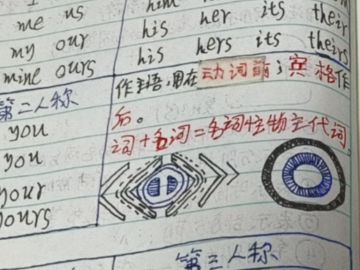 me us
him her its their
my our
his hers its theirs
mine ours
作主语,用在动词前;宾格作
后。
第二人称
词+名词=名词性物主代词
you
you
your
yours
第三人称